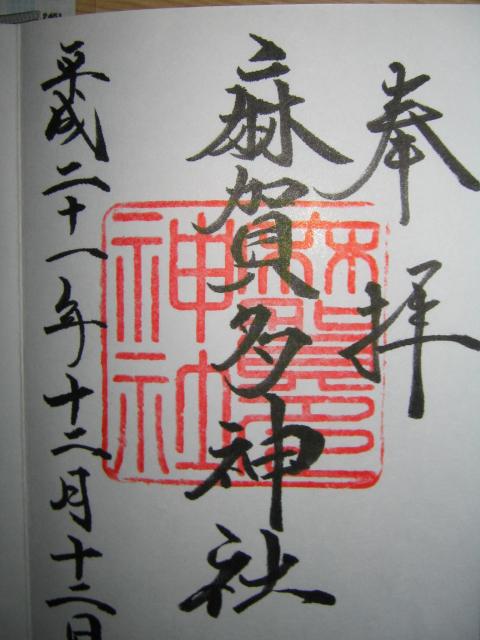 奉拝
麻賀多神社
平成二十一年十二月十二日
麻賀多
神社